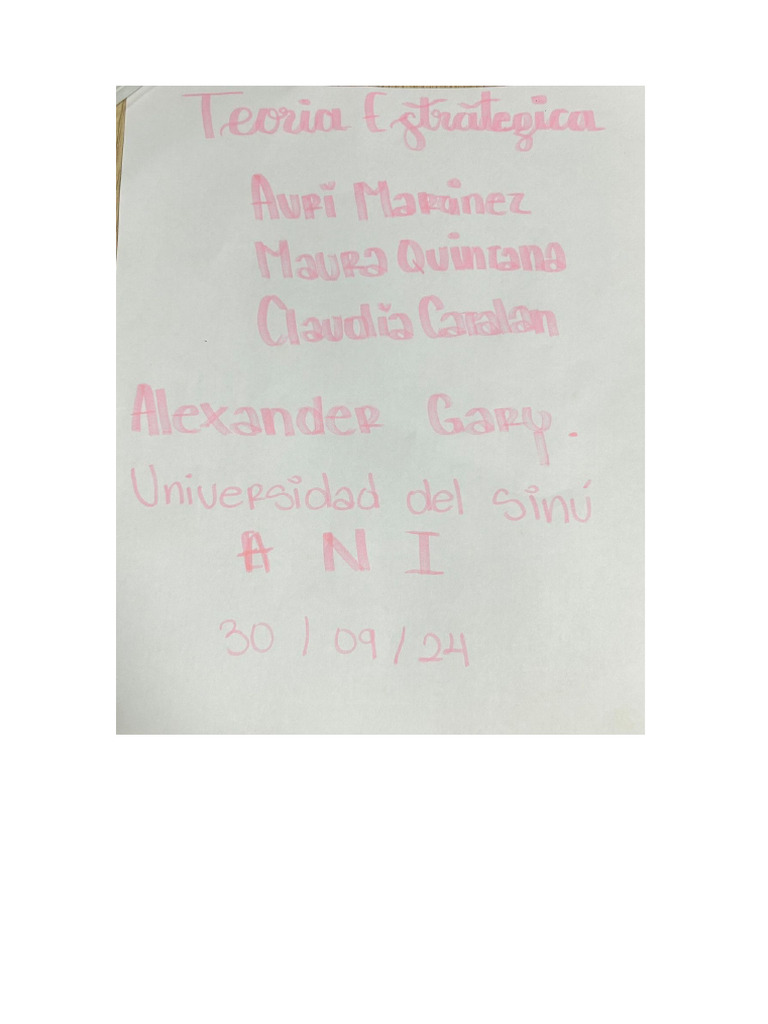 Teoria Estrategica
Auri Marinez
Maura Quintana
Claudia Catalan
Alexander Gary.
Universidad del Sinú
A N I
30 / 09 / 24